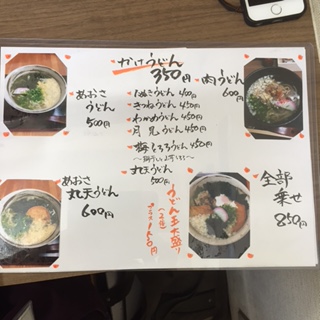 かけうどん
350円
肉うどん
600円
あおさ
うどん
500円
たぬきうどん 400円
きつねうどん 450円
わかめうどん 450円
月見うどん 450円
梅とろろうどん 450円
丸天うどん
500円
あおさ
丸天うどん
600円
うどん玉大盛り
全部
乗せ
850円